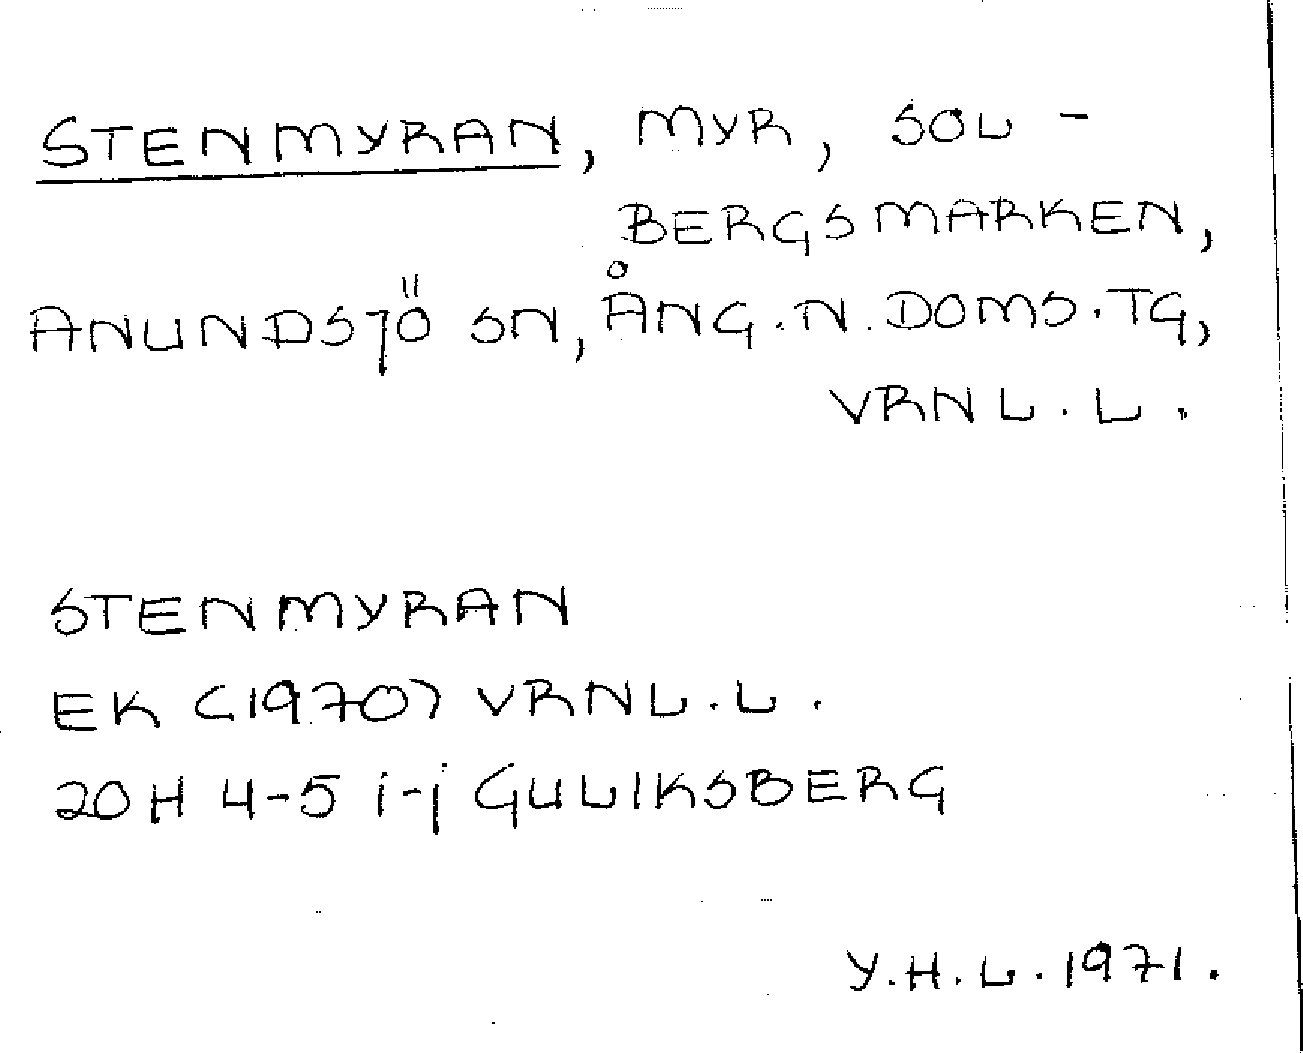 STENMYRAN, MYR, SOL-
BERGSMARKEN,
ANUNDSJÖ SN, ÅNG. N. DOMS. TG,
VRNL. L.
STENMYRAN
EK (1970) VRNL. L.
20H 4-5 i-j GULIKSBERG
Y.H.L. 1971.